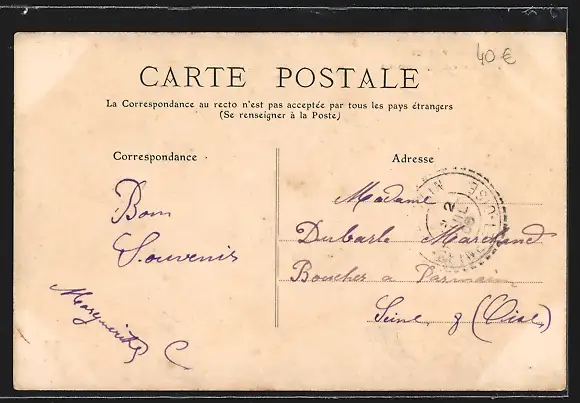 40 €
CARTE POSTALE
La Correspondance au recto n'est pas acceptée par tous les pays étrangers
(Se renseigner à la Poste)
Correspondance
Adresse
Bon
Souvenir
Marguerite C
Madame
Dubarle Marchand
Boucher a Parmain
Seine & (Oise)